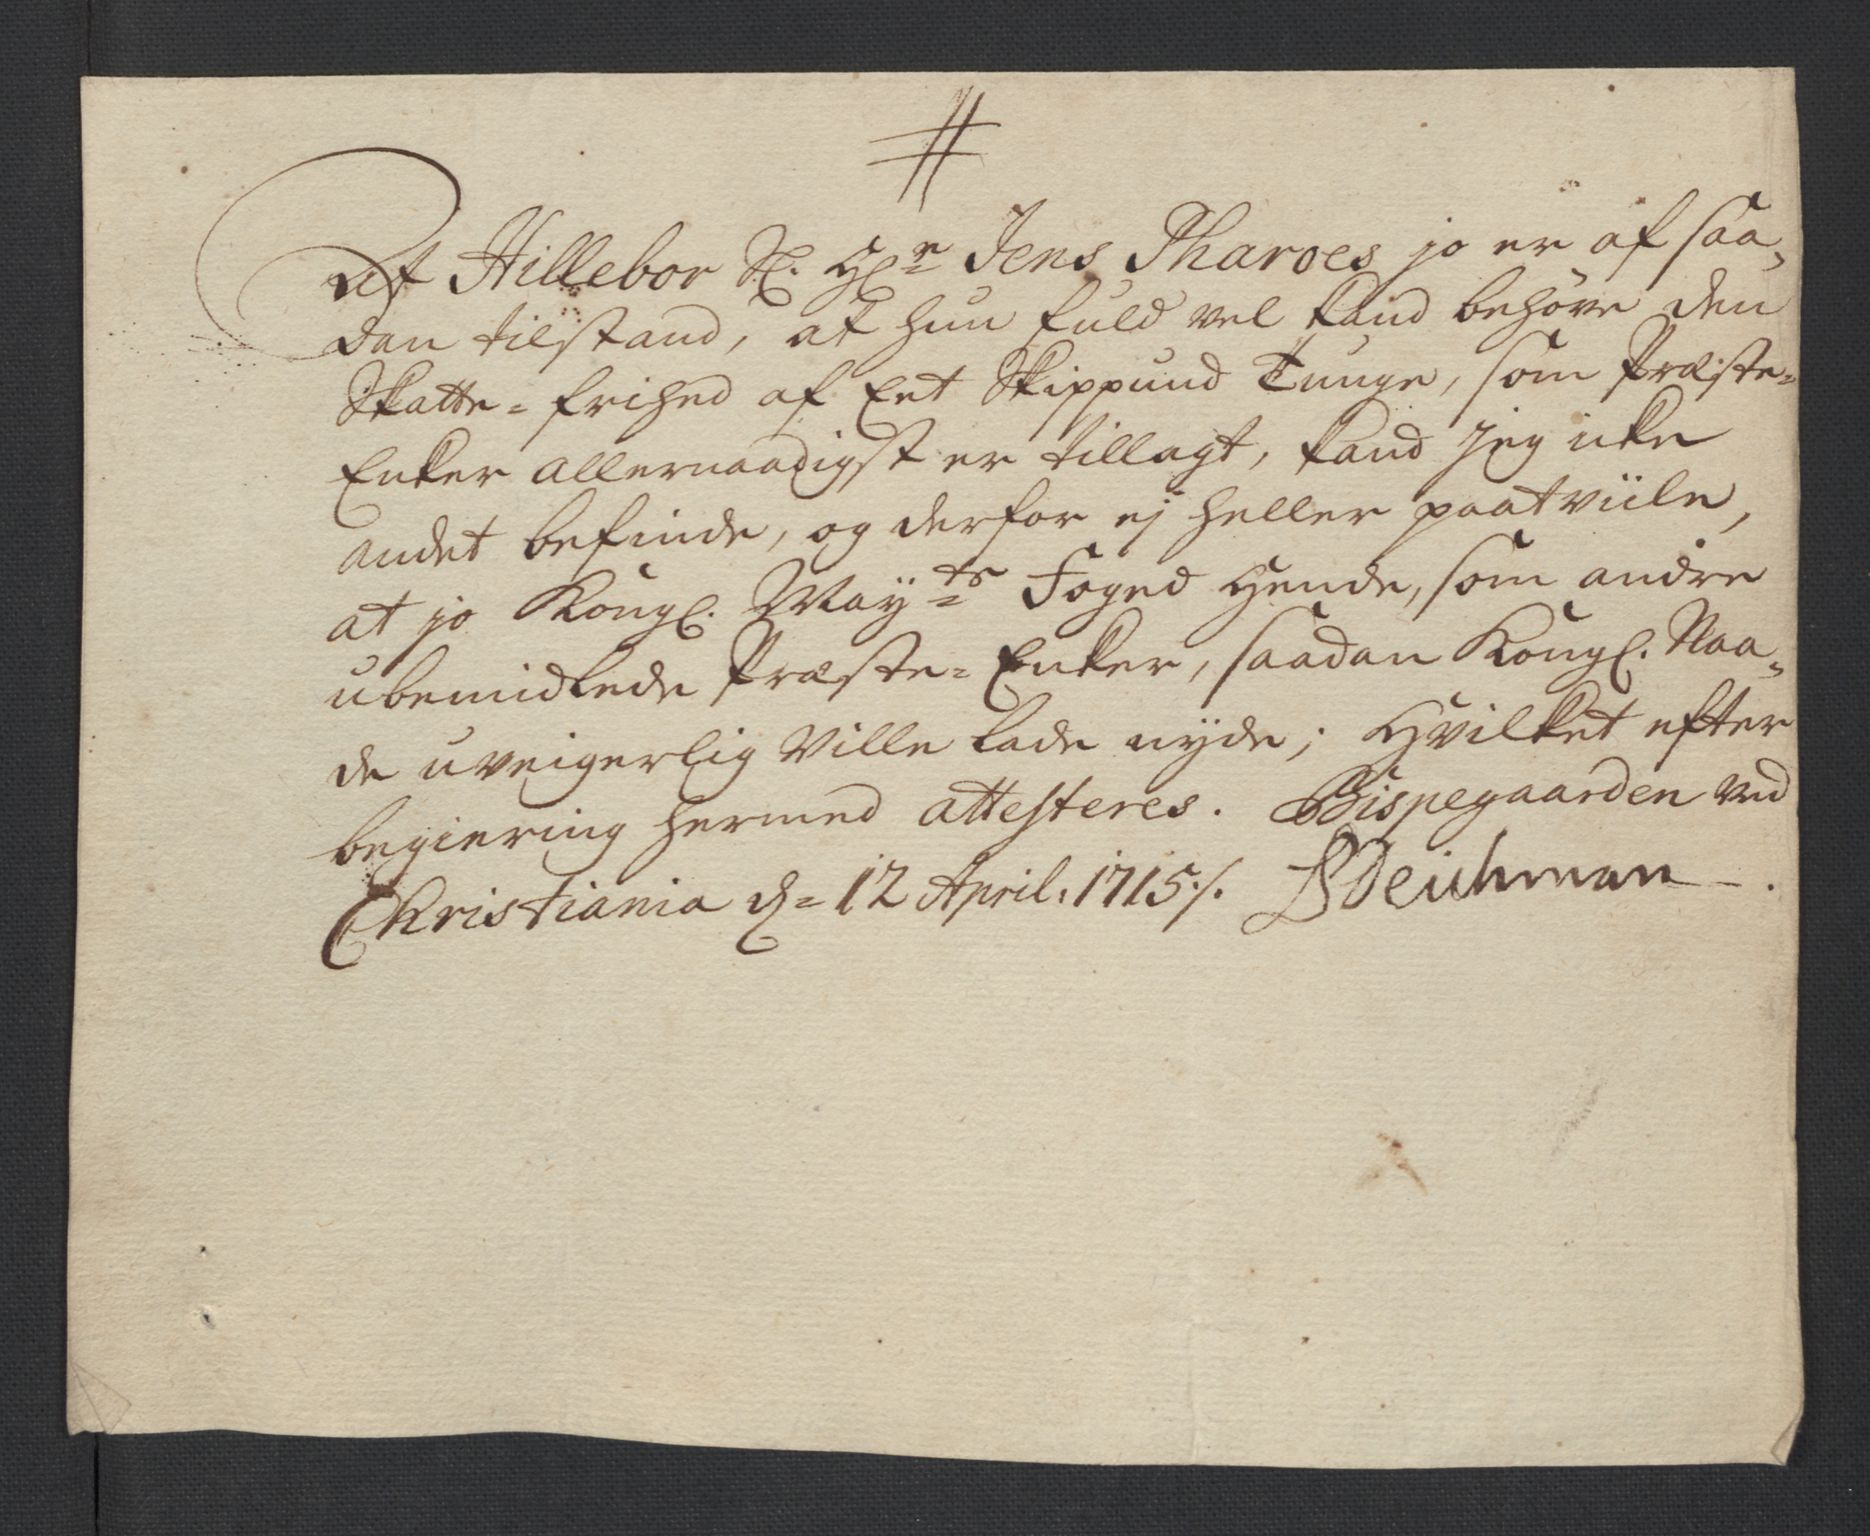 #
At Hillebor Sl. Hr Jens Pharoes jo er af saa-
dan tilstand, at hun fuld vel kand behøve den
Skatte-frihed af Eet Skippund Tunge, som Præste-
Enker allernaadigst er tillagt, kand jeg icke
andet befinde, og derfor ej heller paatviile,
at jo Kongl. Mayts Foged Hende, som andre
ubemidlede Præste-Enker, saadan Kongl. Naa-
de uveigerlig Ville lade nyde; Hvilket efter
begiering hermed attesteres. Bispegaarden ved
Christiania d= 12 April: 1715 ./. BDeichman